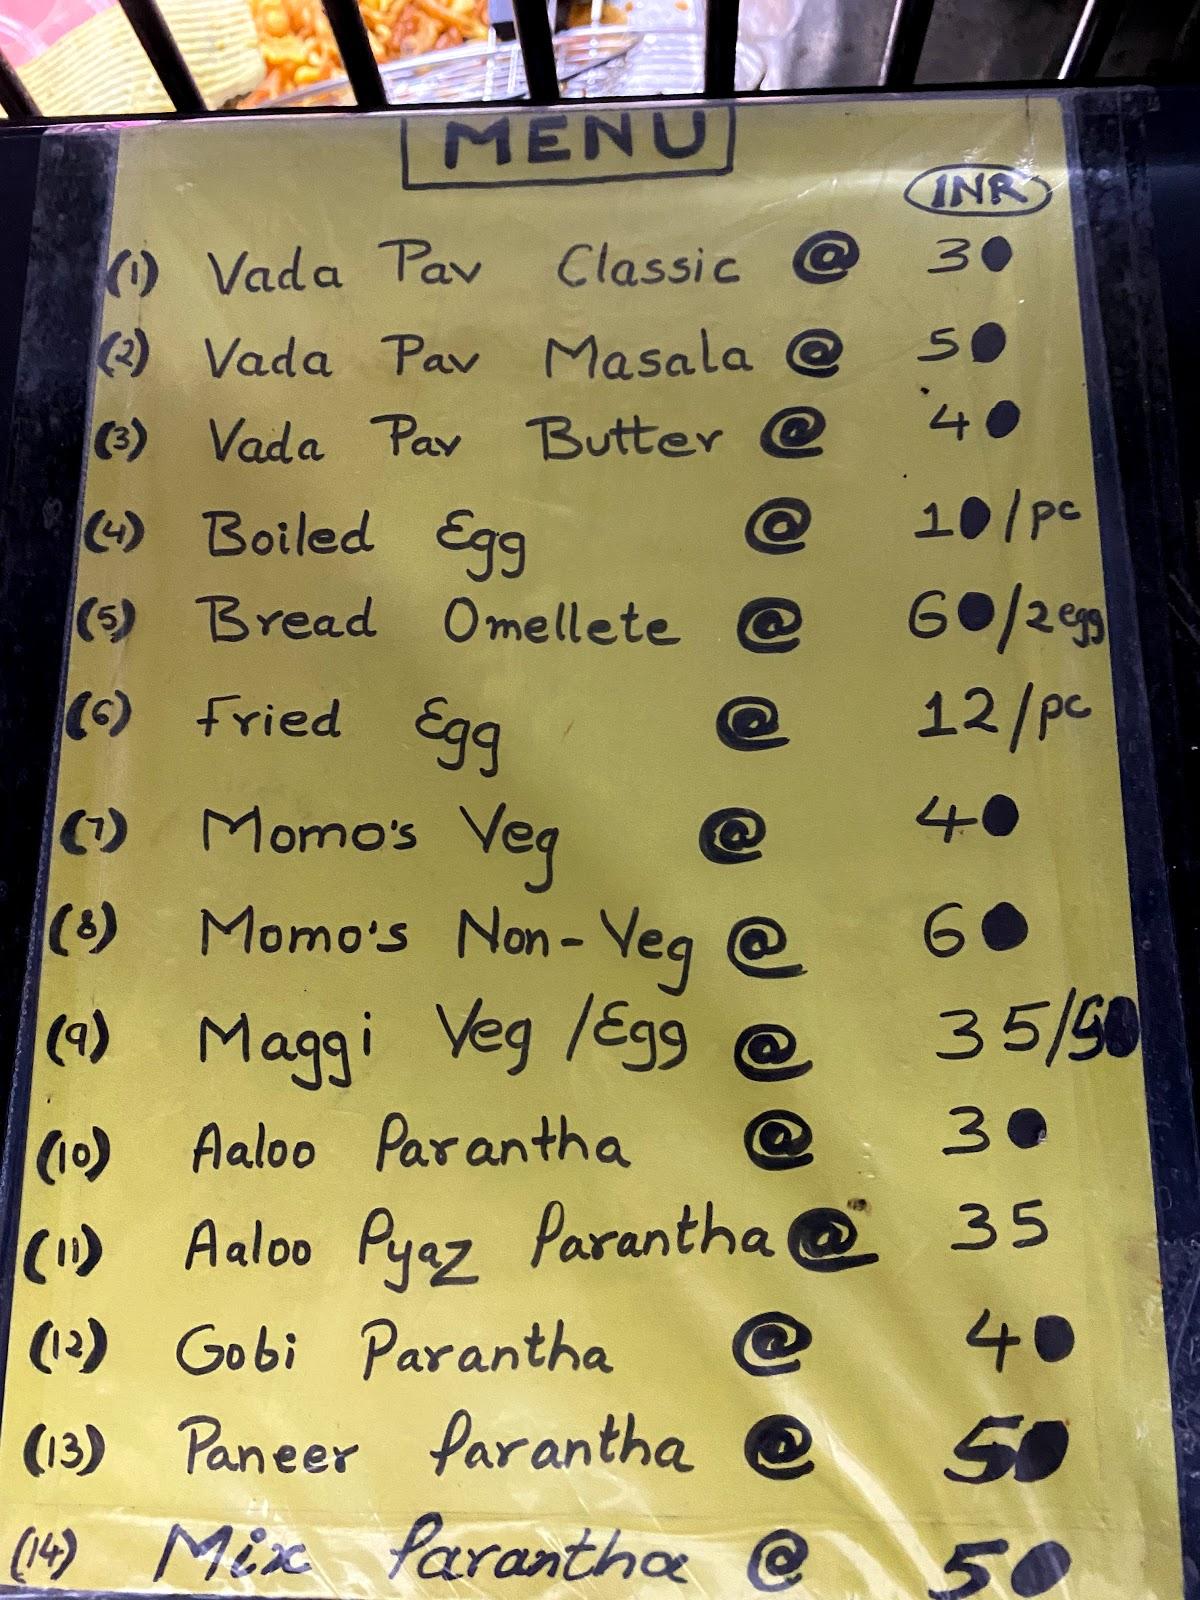 MENU
INR
(1) Vada Pav Classic @ 30
(2) Vada Pav Masala @ 50
(3) Vada Pav Butter @ 40
(4) Boiled Egg @ 10/pc
(5) Bread Omellete @ 60/2egg
(6) Fried Egg @ 12/pc
(7) Momo's Veg @ 40
(8) Momo's Non-Veg @ 60
(9) Maggi Veg/Egg @ 35/50
(10) Aaloo Parantha @ 30
(11) Aaloo Pyaz Parantha @ 35
(12) Gobi Parantha @ 40
(13) Paneer Parantha @ 50
(14) Mix Parantha @ 50